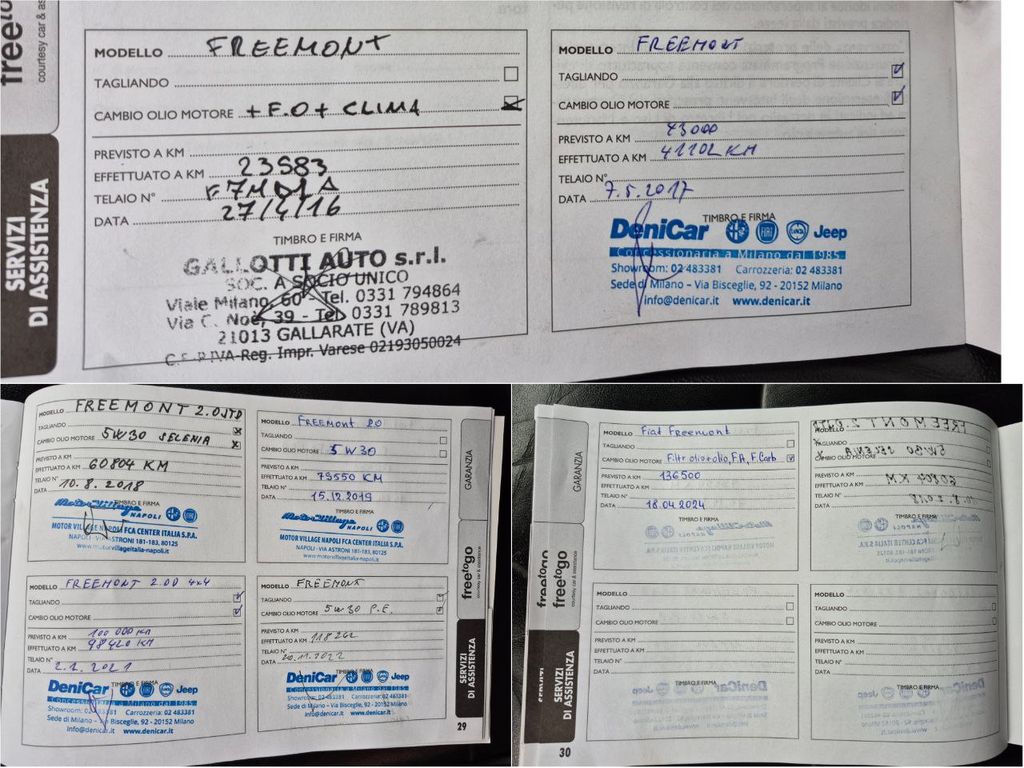 freetogo
courtesy car & as
SERVIZI
DI ASSISTENZA
MODELLO FREEMONT
TAGLIANDO
CAMBIO OLIO MOTORE + F.O + CLIMA
PREVISTO A KM
EFFETTUATO A KM 23583
TELAIO N°
DATA 27/4/16
TIMBRO E FIRMA
GALLOTTI AUTO s.r.l.
SOC. A SOCIO UNICO
Viale Milano, 60 - Tel. 0331 794864
Via C. Noè, 39 - Tel. 0331 789813
21013 GALLARATE (VA)
C.F. P.IVA-Reg. Impr. Varese 02193050024
MODELLO FREEMONT
TAGLIANDO
CAMBIO OLIO MOTORE
PREVISTO A KM 43000
EFFETTUATO A KM 41102 KM
TELAIO N°
DATA 7.5.2017
TIMBRO E FIRMA
DeniCar FIAT Jeep
Concessionaria a Milano dal 1985
Showroom: 02 483381 Carrozzeria: 02 483381
Sede di Milano - Via Bisceglie, 92 - 20152 Milano
info@denicar.it www.denicar.it
MODELLO FREEMONT 2.0JTD
TAGLIANDO
CAMBIO OLIO MOTORE 5W30 SELENIA
PREVISTO A KM
EFFETTUATO A KM 60804 KM
TELAIO N°
DATA 10.8.2018
TIMBRO E FIRMA
Motor Village
NAPOLI
MOTOR VILLAGE NAPOLI FCA CENTER ITALIA S.P.A.
NAPOLI - VIA ASTRONI 181-183, 80125
www.motorvillageitalia-napoli.it
MODELLO Freemont 20
TAGLIANDO
CAMBIO OLIO MOTORE 5W30
PREVISTO A KM
EFFETTUATO A KM 79550 KM
TELAIO N°
DATA 15.12.2019
TIMBRO E FIRMA
Motor Village
NAPOLI
MOTOR VILLAGE NAPOLI FCA CENTER ITALIA S.P.A.
NAPOLI - VIA ASTRONI 181-183, 80125
www.motorvillageitalia-napoli.it
MODELLO FREEMONT 2.0D 4x4
TAGLIANDO
CAMBIO OLIO MOTORE
PREVISTO A KM 100 000 KM
EFFETTUATO A KM 98420 KM
TELAIO N°
DATA 2.1.2021
TIMBRO E FIRMA
DeniCar Jeep
Concessionaria a Milano dal 1985
Showroom: 02 483381 Carrozzeria: 02 483381
Sede di Milano - Via Bisceglie, 92 - 20152 Milano
info@denicar.it www.denicar.it
MODELLO FREEMONT
TAGLIANDO
CAMBIO OLIO MOTORE 5W30 P.E.
PREVISTO A KM
EFFETTUATO A KM
TELAIO N°
DATA 20.11.2022
TIMBRO E FIRMA
DeniCar Jeep
Concessionaria a Milano dal 1985
Showroom: 02 483381 Carrozzeria: 02 483381
Sede di Milano - Via Bisceglie, 92 - 20152 Milano
info@denicar.it www.denicar.it
GARANZIA
freetogo
courtesy car & assistance
SERVIZI
DI ASSISTENZA
29
GARANZIA
freetogo
freetogo
courtesy car & assistance
SERVIZI
SERVIZI
DI ASSISTENZA
30
MODELLO Fiat Freemont
TAGLIANDO
CAMBIO OLIO MOTORE Filtr olio+olio, F.h, F. Carb
PREVISTO A KM
EFFETTUATO A KM 136500
TELAIO N°
DATA 18.04.2024
TIMBRO E FIRMA
MODELLO
TAGLIANDO
CAMBIO OLIO MOTORE
PREVISTO A KM
EFFETTUATO A KM
TELAIO N°
DATA
TIMBRO E FIRMA
MODELLO
TAGLIANDO
CAMBIO OLIO MOTORE
PREVISTO A KM
EFFETTUATO A KM
TELAIO N°
DATA
TIMBRO E FIRMA
MODELLO
TAGLIANDO
CAMBIO OLIO MOTORE
PREVISTO A KM
EFFETTUATO A KM
TELAIO N°
DATA
TIMBRO E FIRMA